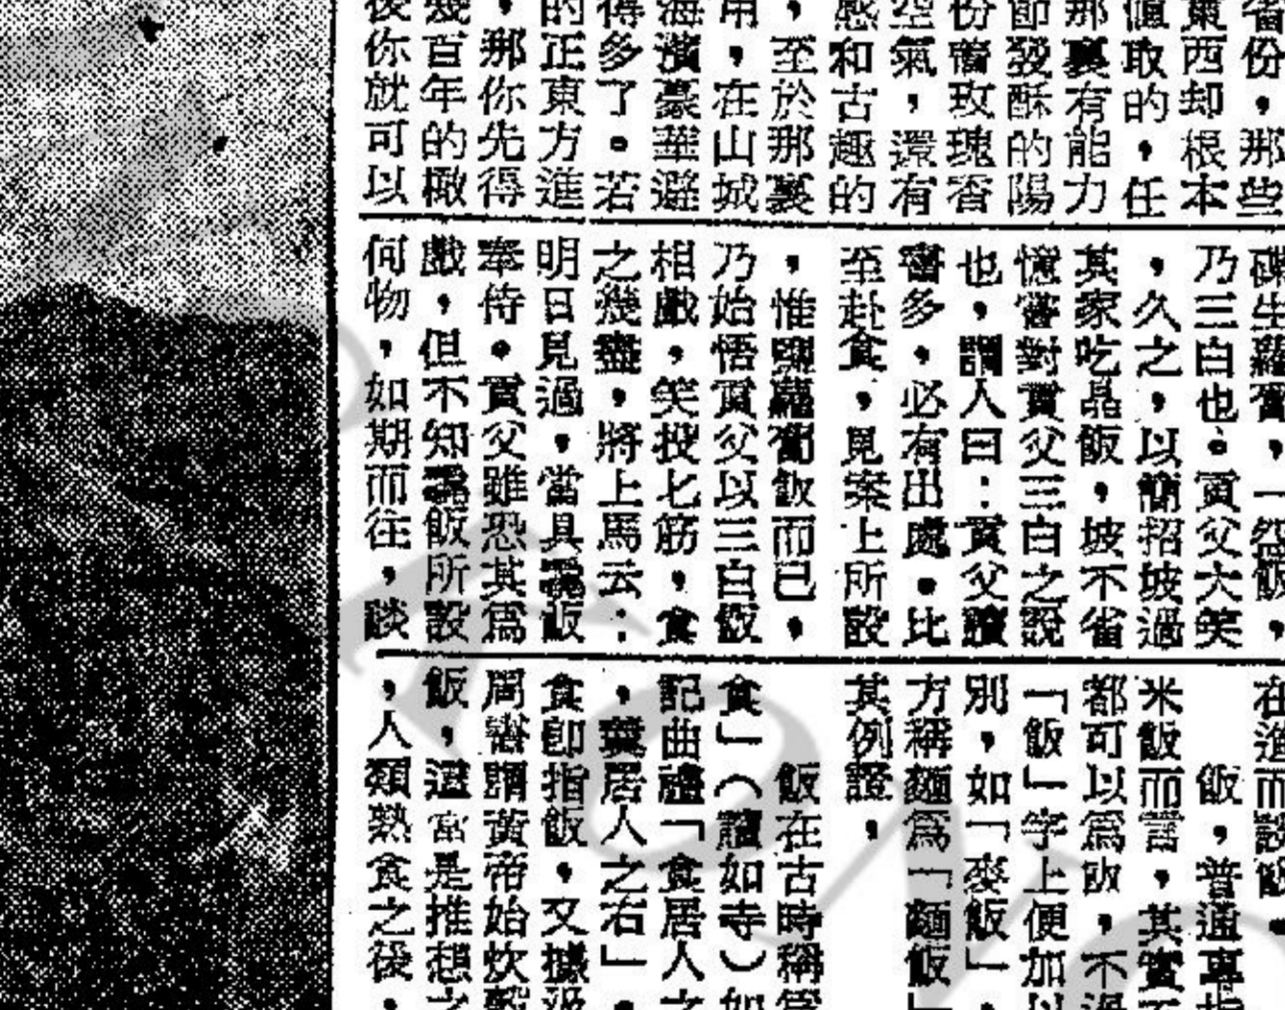 省份，那些
東西却根本
值取的，任
那裏有能力
節發酥的陽
份着玫瑰香
空氣，還有
感和古趣的
，至於那裏
用，在山城
海濱豪華避
得多了。若
的正東方進
，那你先得
幾百年的橄
後你就可以
碟生蘿蔔，一盌飯，
乃三白也。貢父大笑
，久之，以簡招坡過
其家吃皛飯，坡不省
憶嘗對貢父三白之說
也，謂人曰：貢父讀
書多，必有出處。比
至赴食，見案上所設
，惟鹽蘿蔔飯而已，
乃始悟貢父以三白飯
相戲，笑投匕筋，食
之幾盡，將上馬云：
明日見過，當具毳飯
奉侍。貢父雖恐其為
戲，但不知毳飯所設
何物，如期而往，談
在進而說飯。
飯，普通專指
米飯而言，其實不
都可以為飯，不過
「飯」字上便加以
別，如「麥飯」，
方稱麵為「麵飯」
其例證，
飯在古時稱為
食」（讀如寺）如
記曲禮「食居人之
，羹居人之右」。
食卽指飯，又據汲
周書謂黃帝始炊穀
飯，這當是推想之
，人類熟食之後，